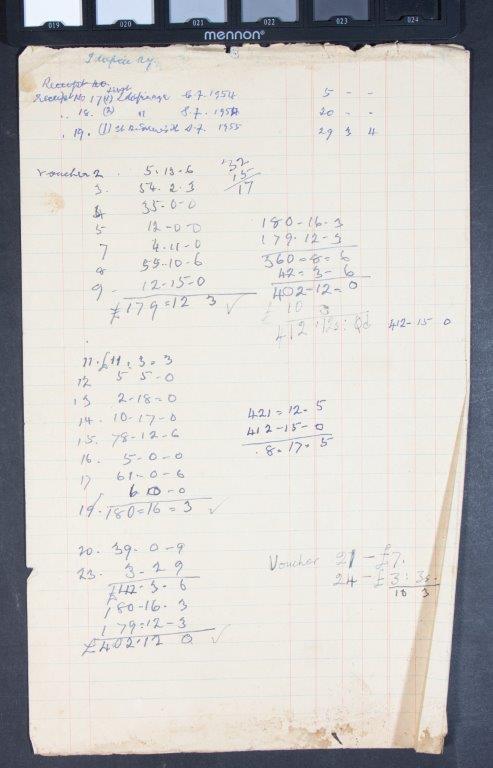 019 020 021 022 023 024
mennon®
Receipt No.
Receipt No 17 6.7.1954 5 - -
" 18. (2) " 8.7.1954 20 - -
" 19. (1) 1955 29 3 4
Voucher 2 . 5.13-6
3. 54.2.3
4 35-0-0
5 12-0-0
7 4.11-0
8 55.10-6
9 - 12-15-0
£179=12 3 ✓
32
15
17
180-16.3
179.12-3
360=8=6
42=3-6
402-12=0
£ 10 3
412.15:0d 412-15 0
11. £11.3=3
12 5 5-0
13 2-18=0
14. 10-17-0
15. 78-12-6
16. 5-0-0
17 61-0-6
6 10-0
19. 180=16=3 ✓
421=12-5
412-15-0
.8=17=5
20. 39.0-9
23. 3-2 9
£42-3-6
180-16.3
179=12-3
£402.12 0 ✓
Voucher 21 - £7.
24 - £3: 3s.
10 3